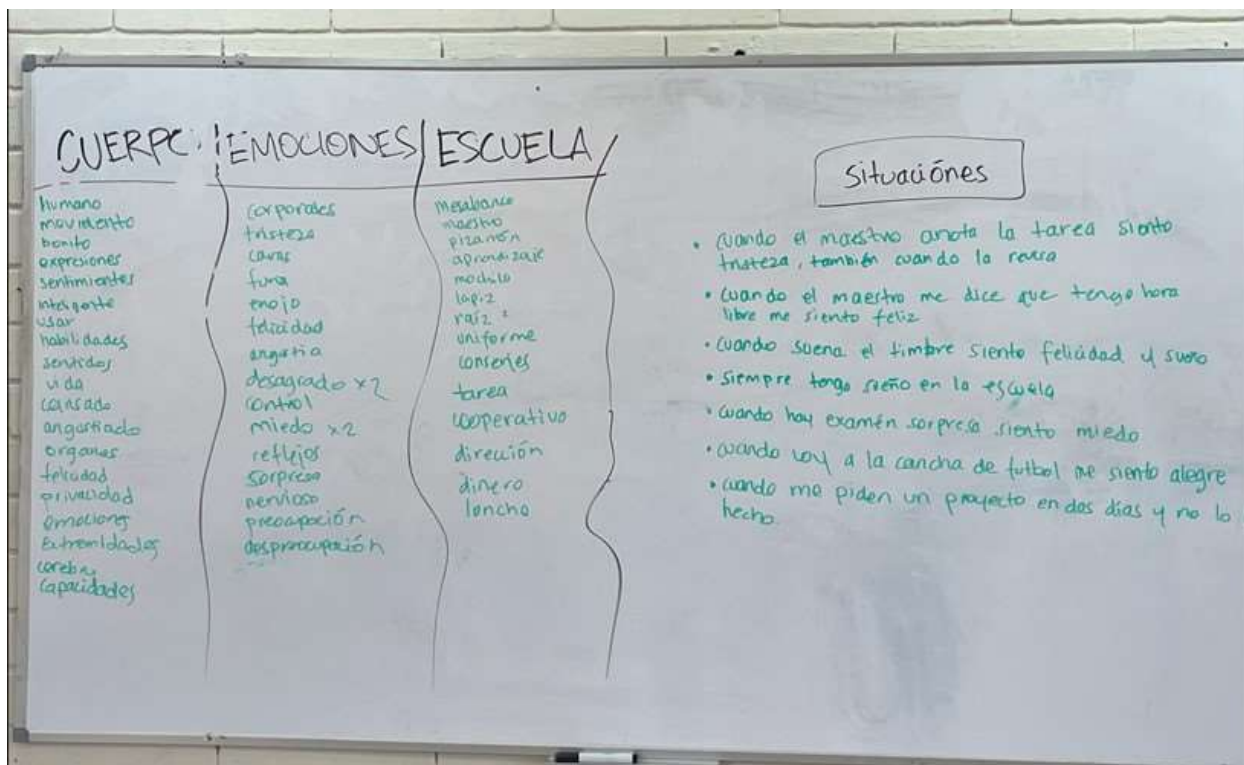 CUERPO
humano
movimiento
bonito
expresiones
sentimientos
inteligente
usar
habilidades
sentidos
vida
cansado
angustiado
organos
felicidad
privacidad
emociones
Extremidades
cerebro
capacidades
EMOCIONES
corporales
tristeza
caras
furia
enojo
felicidad
angustia
desagrado x2
control
miedo x2
reflejos
sorpresa
nervioso
preocupación
despreocupación
ESCUELA
mesabanco
maestro
pizarrón
aprendizaje
modulo
lapiz
raíz
uniforme
conserjes
tarea
cooperativo
dirección
dinero
lonche
Situaciónes
• Cuando el maestro anota la tarea siento
tristeza, también cuando la revisa
• Cuando el maestro me dice que tengo hora
libre me siento feliz
• Cuando suena el timbre siento felicidad y sueño
• Siempre tengo sueño en la escuela
• Cuando hay examén sorpresa siento miedo
• cuando voy a la cancha de futbol me siento alegre
• Cuando me piden un proyecto en dos días y no lo
hecho